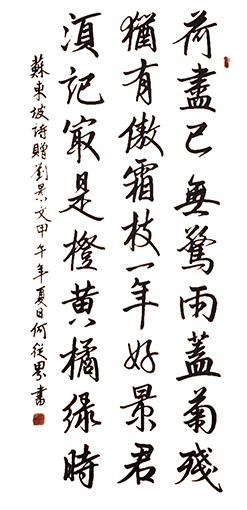 荷盡已無驚雨蓋菊殘
猶有傲霜枝一年好景君
湏記㝡是橙黃橘綠時
蘇東坡詩贈劉景文甲午年夏日何從界書